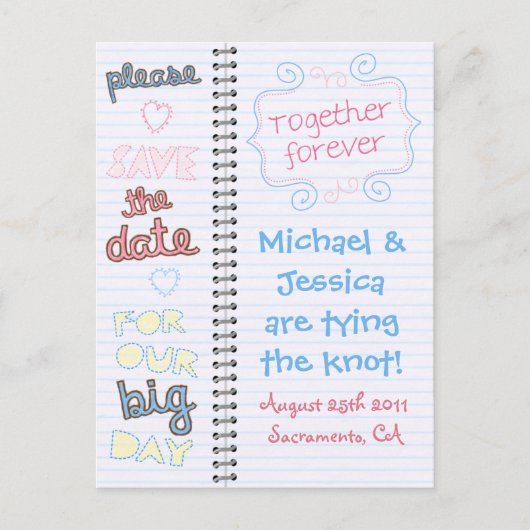 please
SAVE
the
date
FOR
OUR
big
DAY
Together
forever
Michael &
Jessica
are tying
the knot!
August 25th 2011
Sacramento, CA